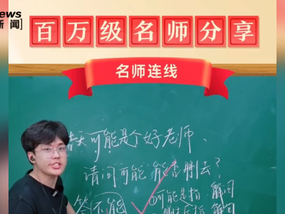 news
新闻
百万级名师分享
名师连线
可能是个好老师、
请问可能能否删去?
答不能
可能是指